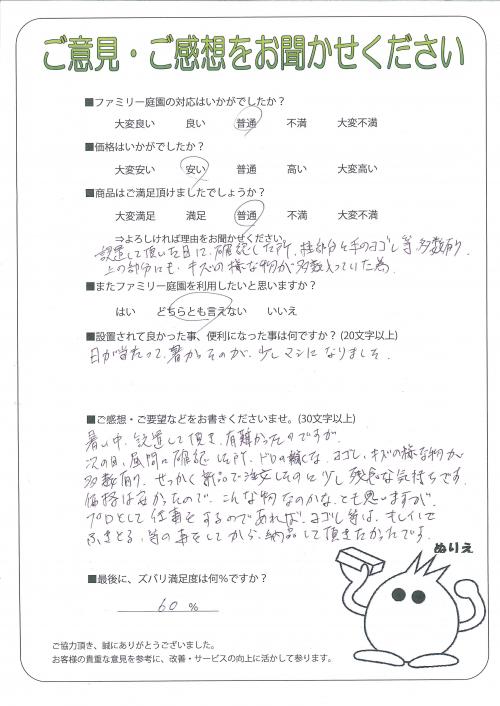 ご意見・ご感想をお聞かせください
■ファミリー庭園の対応はいかがでしたか？
大変良い 良い 普通 不満 大変不満
■価格はいかがでしたか？
大変安い 安い 普通 高い 大変高い
■商品はご満足頂けましたでしょうか？
大変満足 満足 普通 不満 大変不満
⇒よろしければ理由をお聞かせください。
設置して頂いた日に、確認した所、柱部分も手のヨゴレ等多数有り
上の部分にも、キズの様な物が多数入っていた為
■またファミリー庭園を利用したいと思いますか？
はい どちらとも言えない いいえ
■設置されて良かった事、便利になった事は何ですか？(20文字以上)
日が当たって、暑かったのが、少しマシになりました。
■ご感想・ご要望などをお書きくださいませ。(30文字以上)
暑い中、設置して頂き、有難かったのですが、
次の日、昼間に確認した所、ドロの様な、ヨゴレ、キズの様な物が
多数有り、せっかく新品で注文したのに少し残念な気持ちです。
価格は安かったので、こんな物なのかな、とも思いますが、
プロとして仕事をするのであれば、ヨゴレ等は、キレイに
ふきとる、等の事をしてから、納品して頂きたかったです。
ぬりえ
■最後に、ズバリ満足度は何％ですか？
60 %
ご協力頂き、誠にありがとうございました。
お客様の貴重な意見を参考に、改善・サービスの向上に活かして参ります。